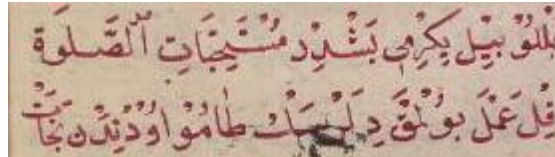 بَللُوْ بِيْل يِكِرْمِى بَشْدِرْ مُسْتَحِبَّاتِ ٱلصَّلَوة
قِل عَمَلْ بُولْمَقْ دِلَرْسَكْ طَامُو اوُدْنِدَنْ نَجَاتْ